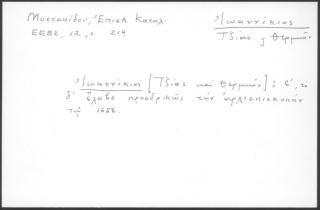 Μυστακίδου, Ἐπισκ Καταλ.
ΕΕΒΣ, 12, σ. 214
Ἰωαννίκιος
Τζιᾶς & Θερμιῶν
Ἰωαννίκιος [Τζιᾶς καὶ Θερμιῶν] :
δ' ἔλαβε προεδρικῶς τὴν ἀρχιεπισκοπὴν
τῷ 1656.